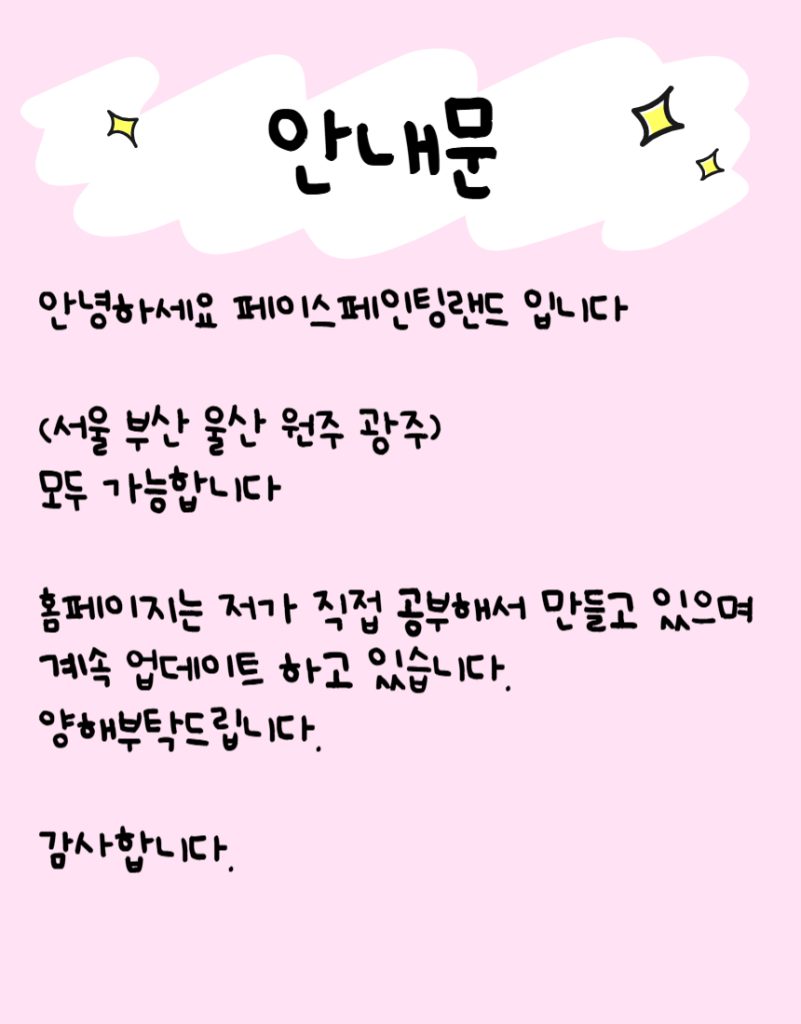 안내문
안녕하세요 페이스페인팅랜드 입니다
(서울 부산 울산 원주 광주)
모두 가능합니다
홈페이지는 저가 직접 공부해서 만들고 있으며
계속 업데이트 하고 있습니다.
양해부탁드립니다.
감사합니다.